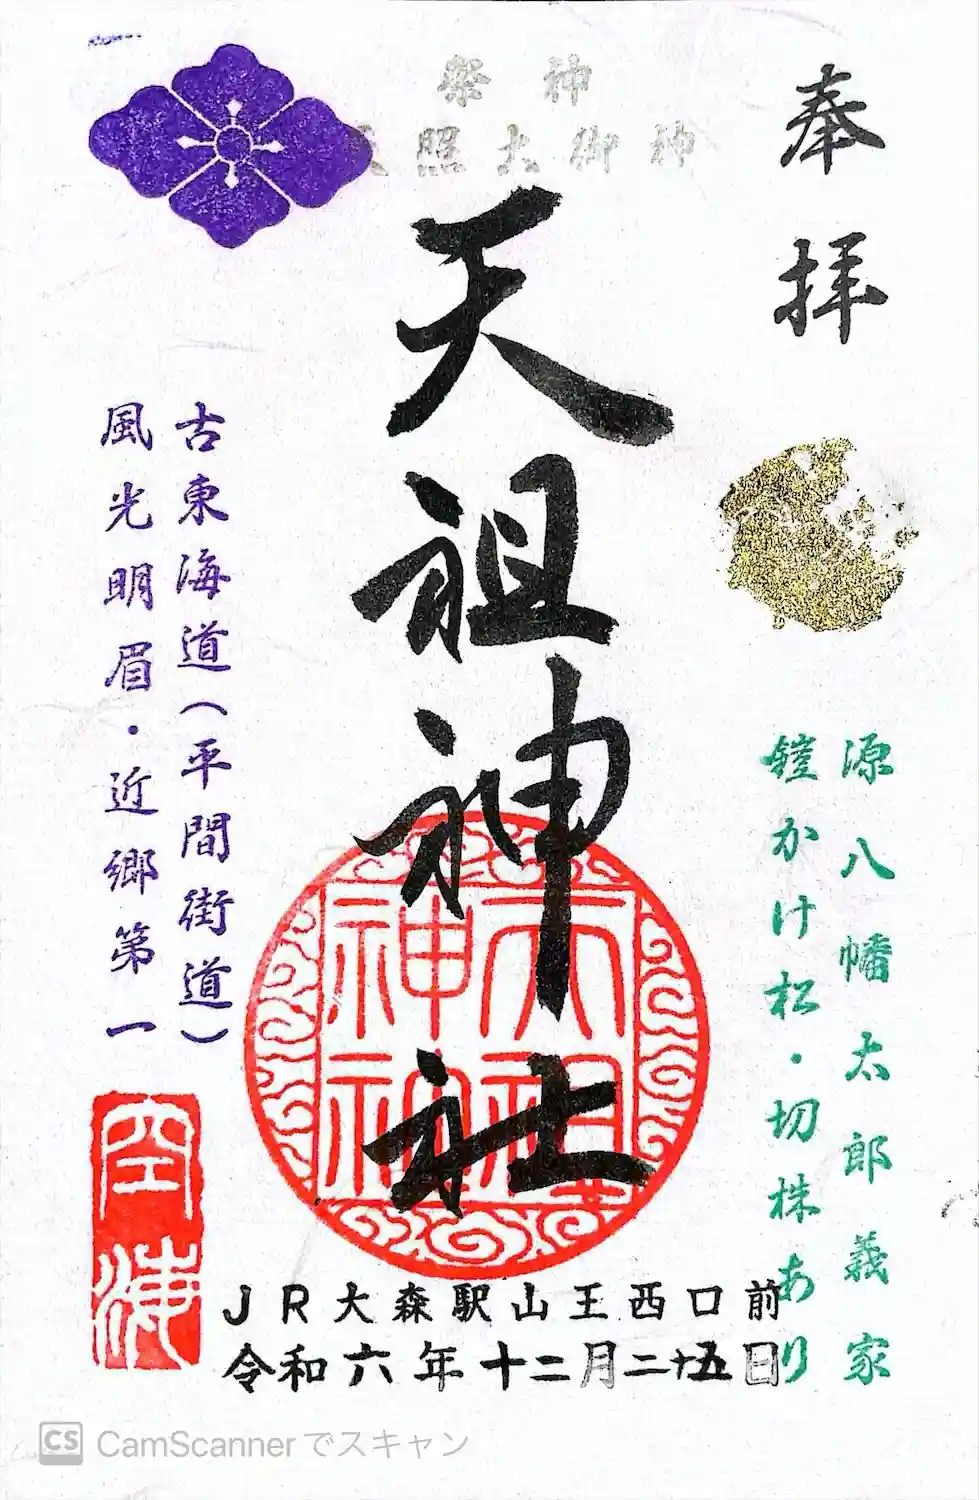 奉拝
源八幡太郎義家
鎧かけ松・切株あり
祭神
天照大御神
天祖神社
天祖神社
古東海道（平間街道）
風光明眉・近郷第一
空海
JR大森駅山王西口前
令和六年十二月二十五日
CS CamScannerでスキャン